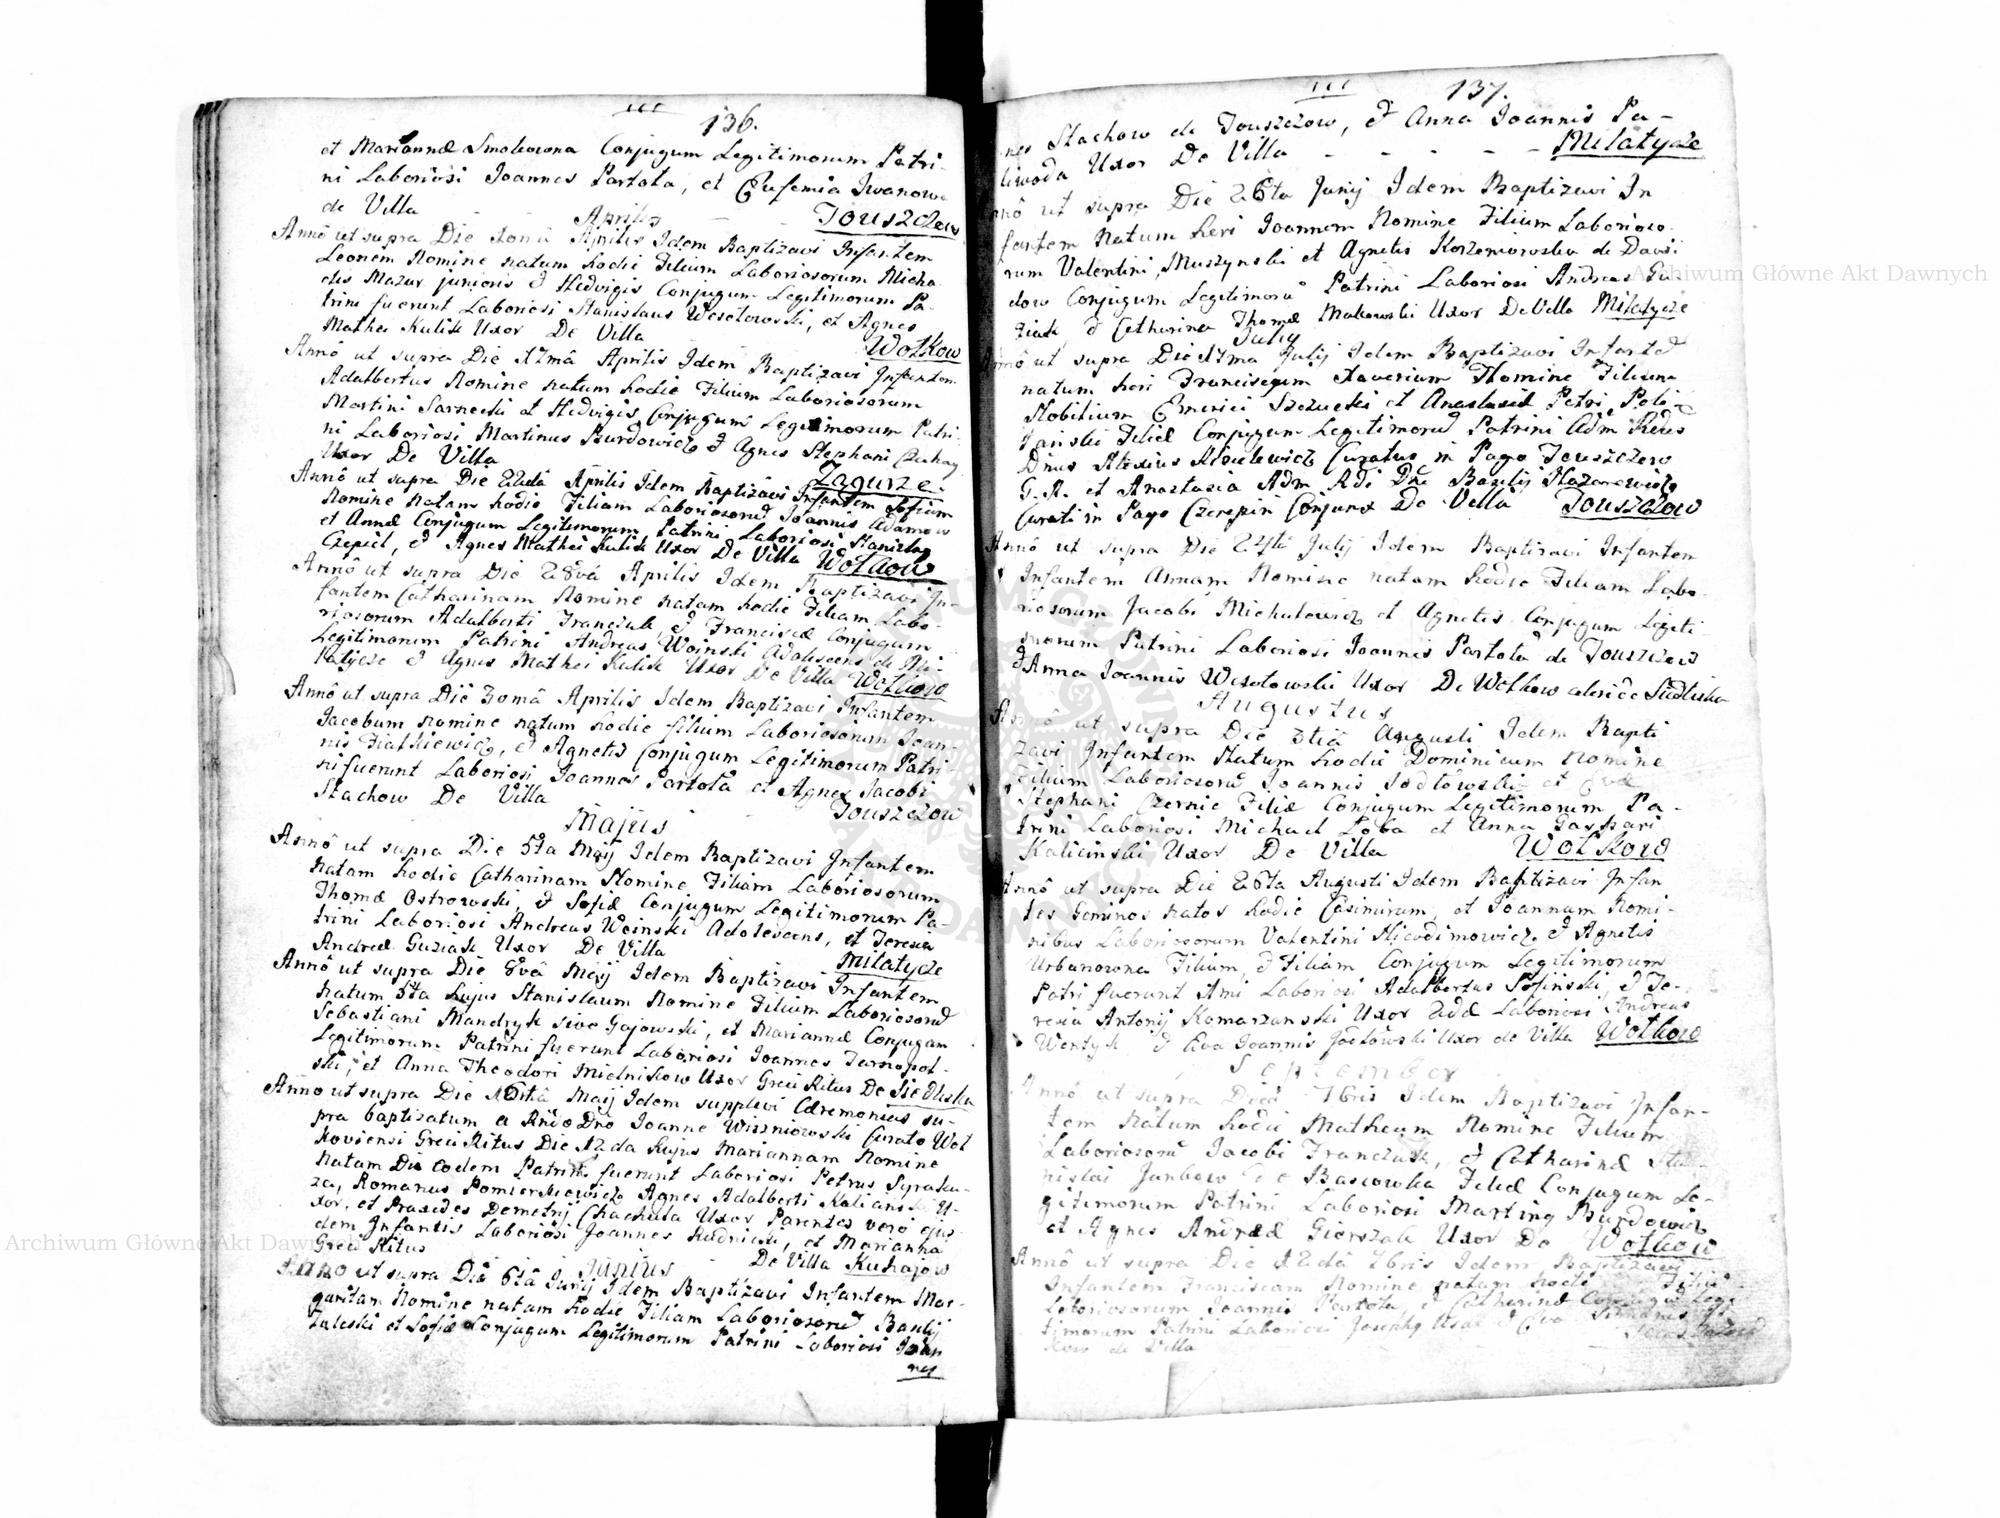 136.
et Mariannæ Smolowona Conjugum Legitimorum Patri-
ni Laboriosi Joannes Partota, et Eufemia Iwanowa
de Villa Touszczow
Aprilis
Annô ut supra Die Aprilis Idem Baptizavi Infantem
Leonem Nomine natum hodie Filium Laboriosorum Micha-
elis Mazur junioris & Hedvigis Conjugum Legitimorum Pa-
trini fuerunt Laboriosi Stanislaus Wesołowski, et Agnes
Mathei Kulik Uxor De Villa Wołkow
Annô ut supra Die 17mâ Aprilis Idem Baptizavi Infantem
Adalbertus Nomine natum hodie Filium Laboriosorum
Martini Sarnecki et Hedvigis Conjugum Legitimorum Patri-
ni Laboriosi Martinus Burdowicz & Agnes Stephani
Uxor De Villa Zagurze.
Annô ut supra Die 22dâ Aprilis Idem Baptizavi Infantem Sofiam
Nomine natam hodie Filiam Laboriosorum Joannis Adamow
et Annæ Conjugum Legitimorum Patrini Laboriosi Stanislaus
Czepiel, & Agnes Mathei Kulik Uxor De Villa Wołkow
Annô ut supra Die 28vâ Aprilis Idem Baptizavi In-
fantem Catharinam Nomine natam hodie Filiam Labo-
riosorum Adalberti Franczuk, & Franciscæ Conjugum
Legitimorum Patrini Andreas Woinski Adolescens de Mi-
latycze & Agnes Mathei Kulik Uxor De Villa Wołkow
Annô ut supra Die 30mâ Aprilis Idem Baptizavi Infantem
Jacobum nomine natum hodie filium Laboriosorum Joan-
nis Fiałkiewicz, & Agnetis Conjugum Legitimorum Patri-
ni fuerunt Laboriosi Joannes Partota et Agnes Jacobi
Stachow De Villa Touszczow
Majus
Annô ut supra Die 5ta Maij Idem Baptizavi Infantem
natam hodie Catharinam Nomine Filiam Laboriosorum
Thomæ Ostrowski, & Sofiæ Conjugum Legitimorum Pa-
trini Laboriosi Andreas Woinski Adolescens, et Teresia
Andreæ Guziak Uxor De Villa Milatycze
Annô ut supra Die 8vâ Maij Idem Baptizavi Infantem
natum 5ta hujus Stanislaum Nomine Filium Laboriosorum
Sebastiani Mandryk sive Gajowski, et Mariannæ Conjugum
Legitimorum Patrini fuerunt Laboriosi Joannes Tarnopol-
ski, et Anna Theodori Mielnikow Uxor Græci Ritus De Siedliska
Anno ut supra Die Maij Idem supplevi Cæremonias su-
pra baptizatum a Rndo Dno Joanne Wiszniowski Curato Woł
koviensi Græci Ritus Die 12da hujus Mariannam Nomine
natam Die eodem Patrini fuerunt Laboriosi Petrus Syraku-
za, Romanus Pomierkiewicz Agnes Adalberti Kalicinski U-
xor, et Praxedes Demetrij Chachuła Uxor Parentes verò ejus-
dem Infantis Laboriosi Joannes Rudnicki, et Marianna
Græci Ritus De Villa Kuhajow
Junius
Anno ut supra Die 6tâ Junij Idem Baptizavi Infantem Mar-
garitam Nomine natam hodie Filiam Laboriosorum Basilij
Zaleski et Sofiæ Conjugum Legitimorum Patrini Laboriosi Joan
nes
137.
nes Stachow de Touszczow, & Anna Joannis Pa-
liwoda Uxor De Villa - - - - - Milatycze
Annô ut supra Die 26ta Junij Idem Baptizavi In
fantem Natum heri Joannem Nomine Filium Laborioso-
rum Valentini Muszynski et Agnetis Korzeniowska de Dawi
dow Conjugum Legitimorum Patrini Laboriosi Andreas Gu-
ziak, & Catharina Thomæ Makowski Uxor De Villa Milatycze
July
Annô ut supra Die 17ma Julij Idem Baptizavi Infantem
natum heri Franciscum Xaverium Nomine Filium
Nobilium Emerici Szczucki et Anastasiæ Petri
Filiæ Conjugum Legitimorum Patrini Adm Rdus
Dnus Alexius Curatus in Pago Touszczow
G. R. et Anastasia Adm Rdi Dni Basilij
Curati in Pago Czerepin Conjunx De Villa Touszczow
Annô ut supra Die 24ta Julij Idem Baptizavi Infantem
Infantem Annam Nomine natam hodie Filiam Labo-
riosorum Jacobi Michułowicz et Agnetis Conjugum Legiti-
morum Patrini Laboriosi Joannis Partota de Touszczow
& Anna Joannis Wesołowski Uxor De Wołkow Siedliska
Augustus
Annô ut supra Die 3tiâ Augusti Idem Bapti
zavi Infantem Natum hodie Dominicum Nomine
Filium Laboriosorum Joannis Jodłowski et Evæ
Stephani Czernic Filiæ Conjugum Legitimorum Pa-
trini Laboriosi Michael Łoba et Anna Gaspari
Kalicinski Uxor De Villa Wołkow
Annô ut supra Die 26ta Augusti Idem Baptizavi Infan
tes Geminos natos hodie Casimirum, et Joannam Nomi-
nibus Laboriosorum Valentini Nicodimowicz & Agnetis
Urbanowna Filium, & Filiam Conjugum Legitimorum
Patri fuerunt 1mi Laboriosi Adalbertus & Te-
resia Antonij Komarzanski Uxor 2dæ Laboriosi Andreas
Wentyk & Eva Joannis Jodłowski Uxor de Villa Wołkow
September
Annô ut supra Die 7bris Idem Baptizavi Infan-
tem natum hodie Matheum Nomine Filium
Laboriosorum Jacobi Franczuk, & Catharinæ Sta-
nislai Filiæ Conjugum Le-
gitimorum Patrini Laboriosi Martinus Burdowicz
et Agnes Andreæ Uxor De Wołkow
Annô ut supra Die 12dâ 7bris Idem Baptizavi
Infantem Franciscam Nomine natam hodie Filiam
Laboriosorum Joannis Partota, & Catharinæ Conjugum Legi-
timorum Patrini Laboriosi Josephus & Eva
de Villa
Archiwum Główne Akt Dawnych
Archiwum Główne Akt Dawnych